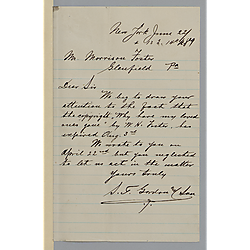 New York June 22/
Mr. Morrison Foster
Glenfield Pa
Dear Sir
We beg to draw your
attention to the fact that
the copyright, "Why have my loved
ones gone" by W. H. Foster, has
expired Aug. 3rd
We wrote to you on
April 22nd but you neglected
to let us act in the matter
Yours truly
S. T. Gordon & Son